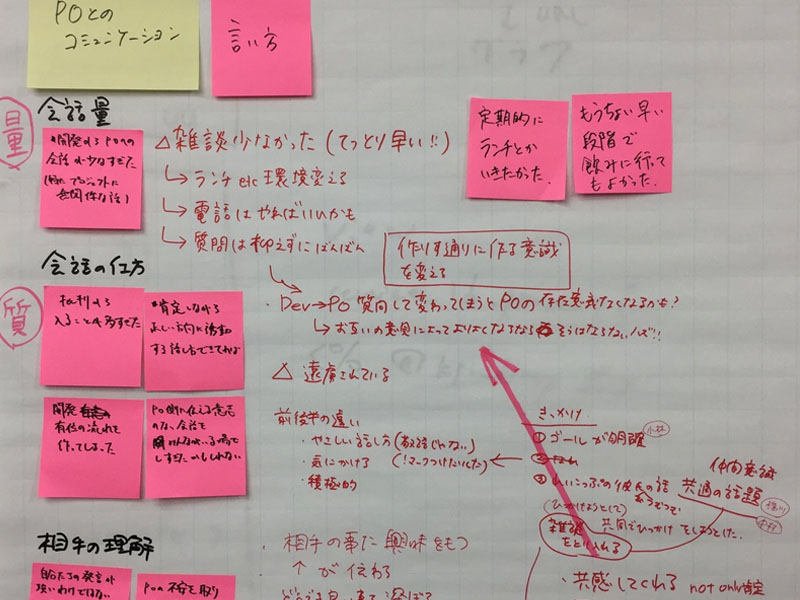 POとの
コミュニケーション
言い方
量
会話量
開発からPOへの
会話が少なすぎた
△雑談少なかった(てっとり早い!!)
↳ランチetc環境変える
↳電話はやればいいかも
↳質問は抑えずにばんばん
定期的に
ランチとか
いきたかった。
もうちょい早い
段階で
飲みに行って
もよかった。
作りす通りに作る意識
を変える
会話の仕方
質
批判から
入ることが多すぎた
肯定しながら
正しい方向に誘導
する話し方できてれば
・Dev→PO 質問して変わってしまうとPOの存在意義なくなるかも?
↳お互いの意見によってよりよくなるなら そうはならないハズ!!
△遠慮されている
開発
有位の流れを
作ってしまった
PO側に伝える意志
のない会話を
しすぎたかもしれない
前後半の違い
・やさしい話し方(敬語じゃない)
・気にかける(!マークつけたいした)
・積極的
きっかけ
①ゴールが明確
小林
②
の彼氏の話
仲間意識
共通の話題
(ひっかけようとして)
雑談
をとりいれる
共同でひっかけをしようとした。
・共感してくれる not only 肯定
相手の理解
相手の事に興味をもつ
↑が伝わる
自分たちの発言が
POの不安を取り